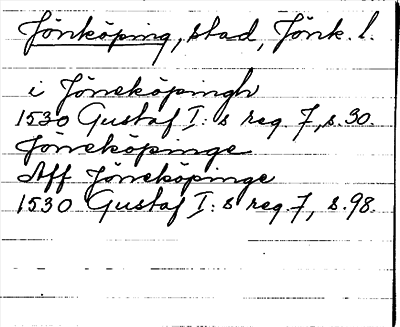 Jönköping, stad, Jönk. l.
i Jöneköpingh
1530 Gustaf I:s reg. 7, s. 30.
Jöneköpinge
Aff Jöneköpinge
1530 Gustaf I:s reg. 7, s. 98.